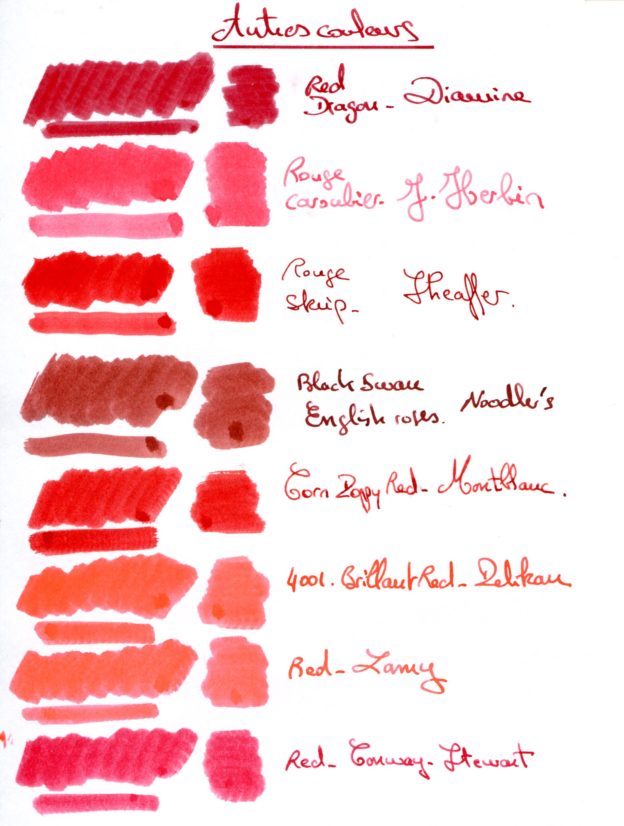 Autres couleurs
Red
Dragon - Diamine
Rouge
caroubier - J. Herbin
Rouge
Skrip - Sheaffer.
Black Swan
English roses. Noodler's
Corn Poppy Red - Montblanc.
4001. Brillant Red - Pelikan
Red - Lamy
Red - Conway - Stewart